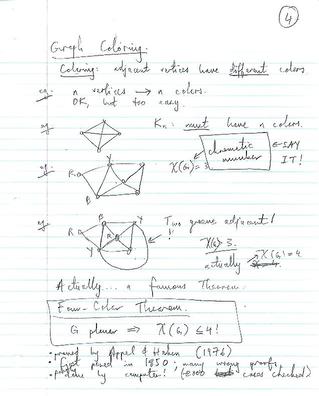 4
Graph Coloring.
Coloring: adjacent vertices have different colors
eg: n vertices → n colors.
OK, but too easy.
eg. Kn: must have n colors.
chromatic number ← SAY IT!
eg. R Y B χ(G) = 3
eg. Two greens adjacent!
R B Y Y
χ(G) > 3.
actually χ(G) = 4
Actually... a famous Theorem.
Four-Color Theorem.
G planar ⇒ χ(G) ≤ 4!
• proved by Appel & Haken (1976)
• first posed in 1850; many wrong proofs
• done by computer! cases checked)